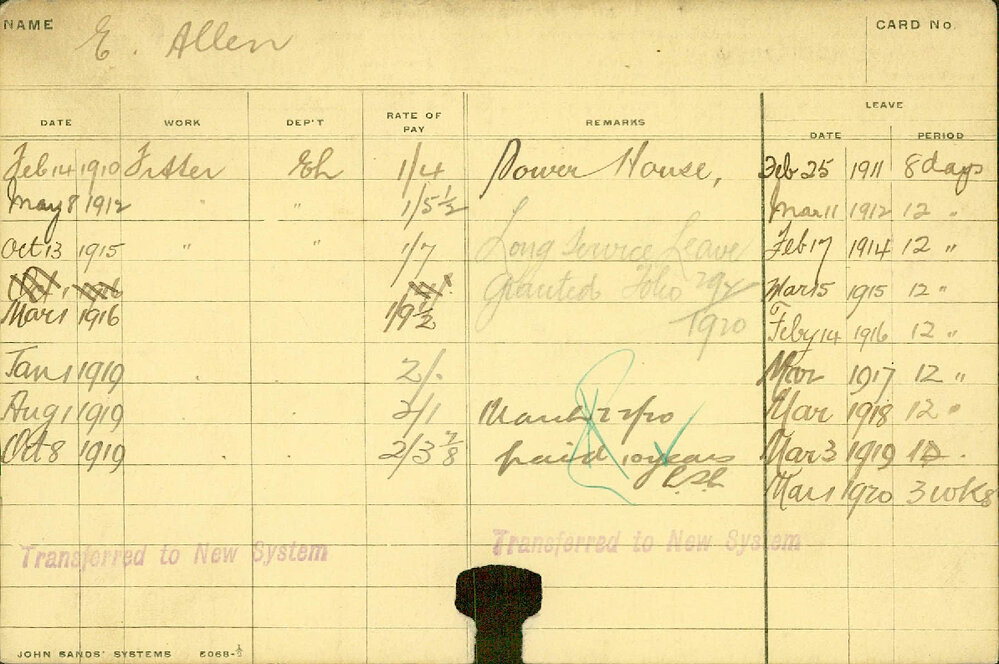 NAME E. Allen CARD No.
LEAVE
DATE WORK DEP'T RATE OF PAY REMARKS DATE PERIOD
Feb 14 1910 Fitter Eh 1/4 Power House, Feb 25 1911 8 days
May 8 1912 " " 1/5½ Mar 11 1912 12 "
Oct 13 1915 " " 1/7 Long Service Leave Feb 17 1914 12 "
Granted Folio Mar 5 1915 12 "
Mar 1 1916 1/9½ 1920 Feby 14 1916 12 "
Jan 1 1919 2/. Mar 1917 12 "
Aug 1 1919 2/1 March 22/20 Mar 1918 12 "
Oct 8 1919 2/3⅞ paid 10 years Mar 3 1919 12 .
Mar 1 1920 3 wks
Transferred to New System Transferred to New System
JOHN SANDS' SYSTEMS